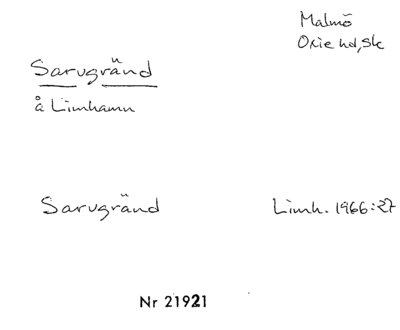 Malmö
Oxie hd, Sk
Sarugränd
å Limhamn
Sarugränd Limh. 1966:27
Nr 21921